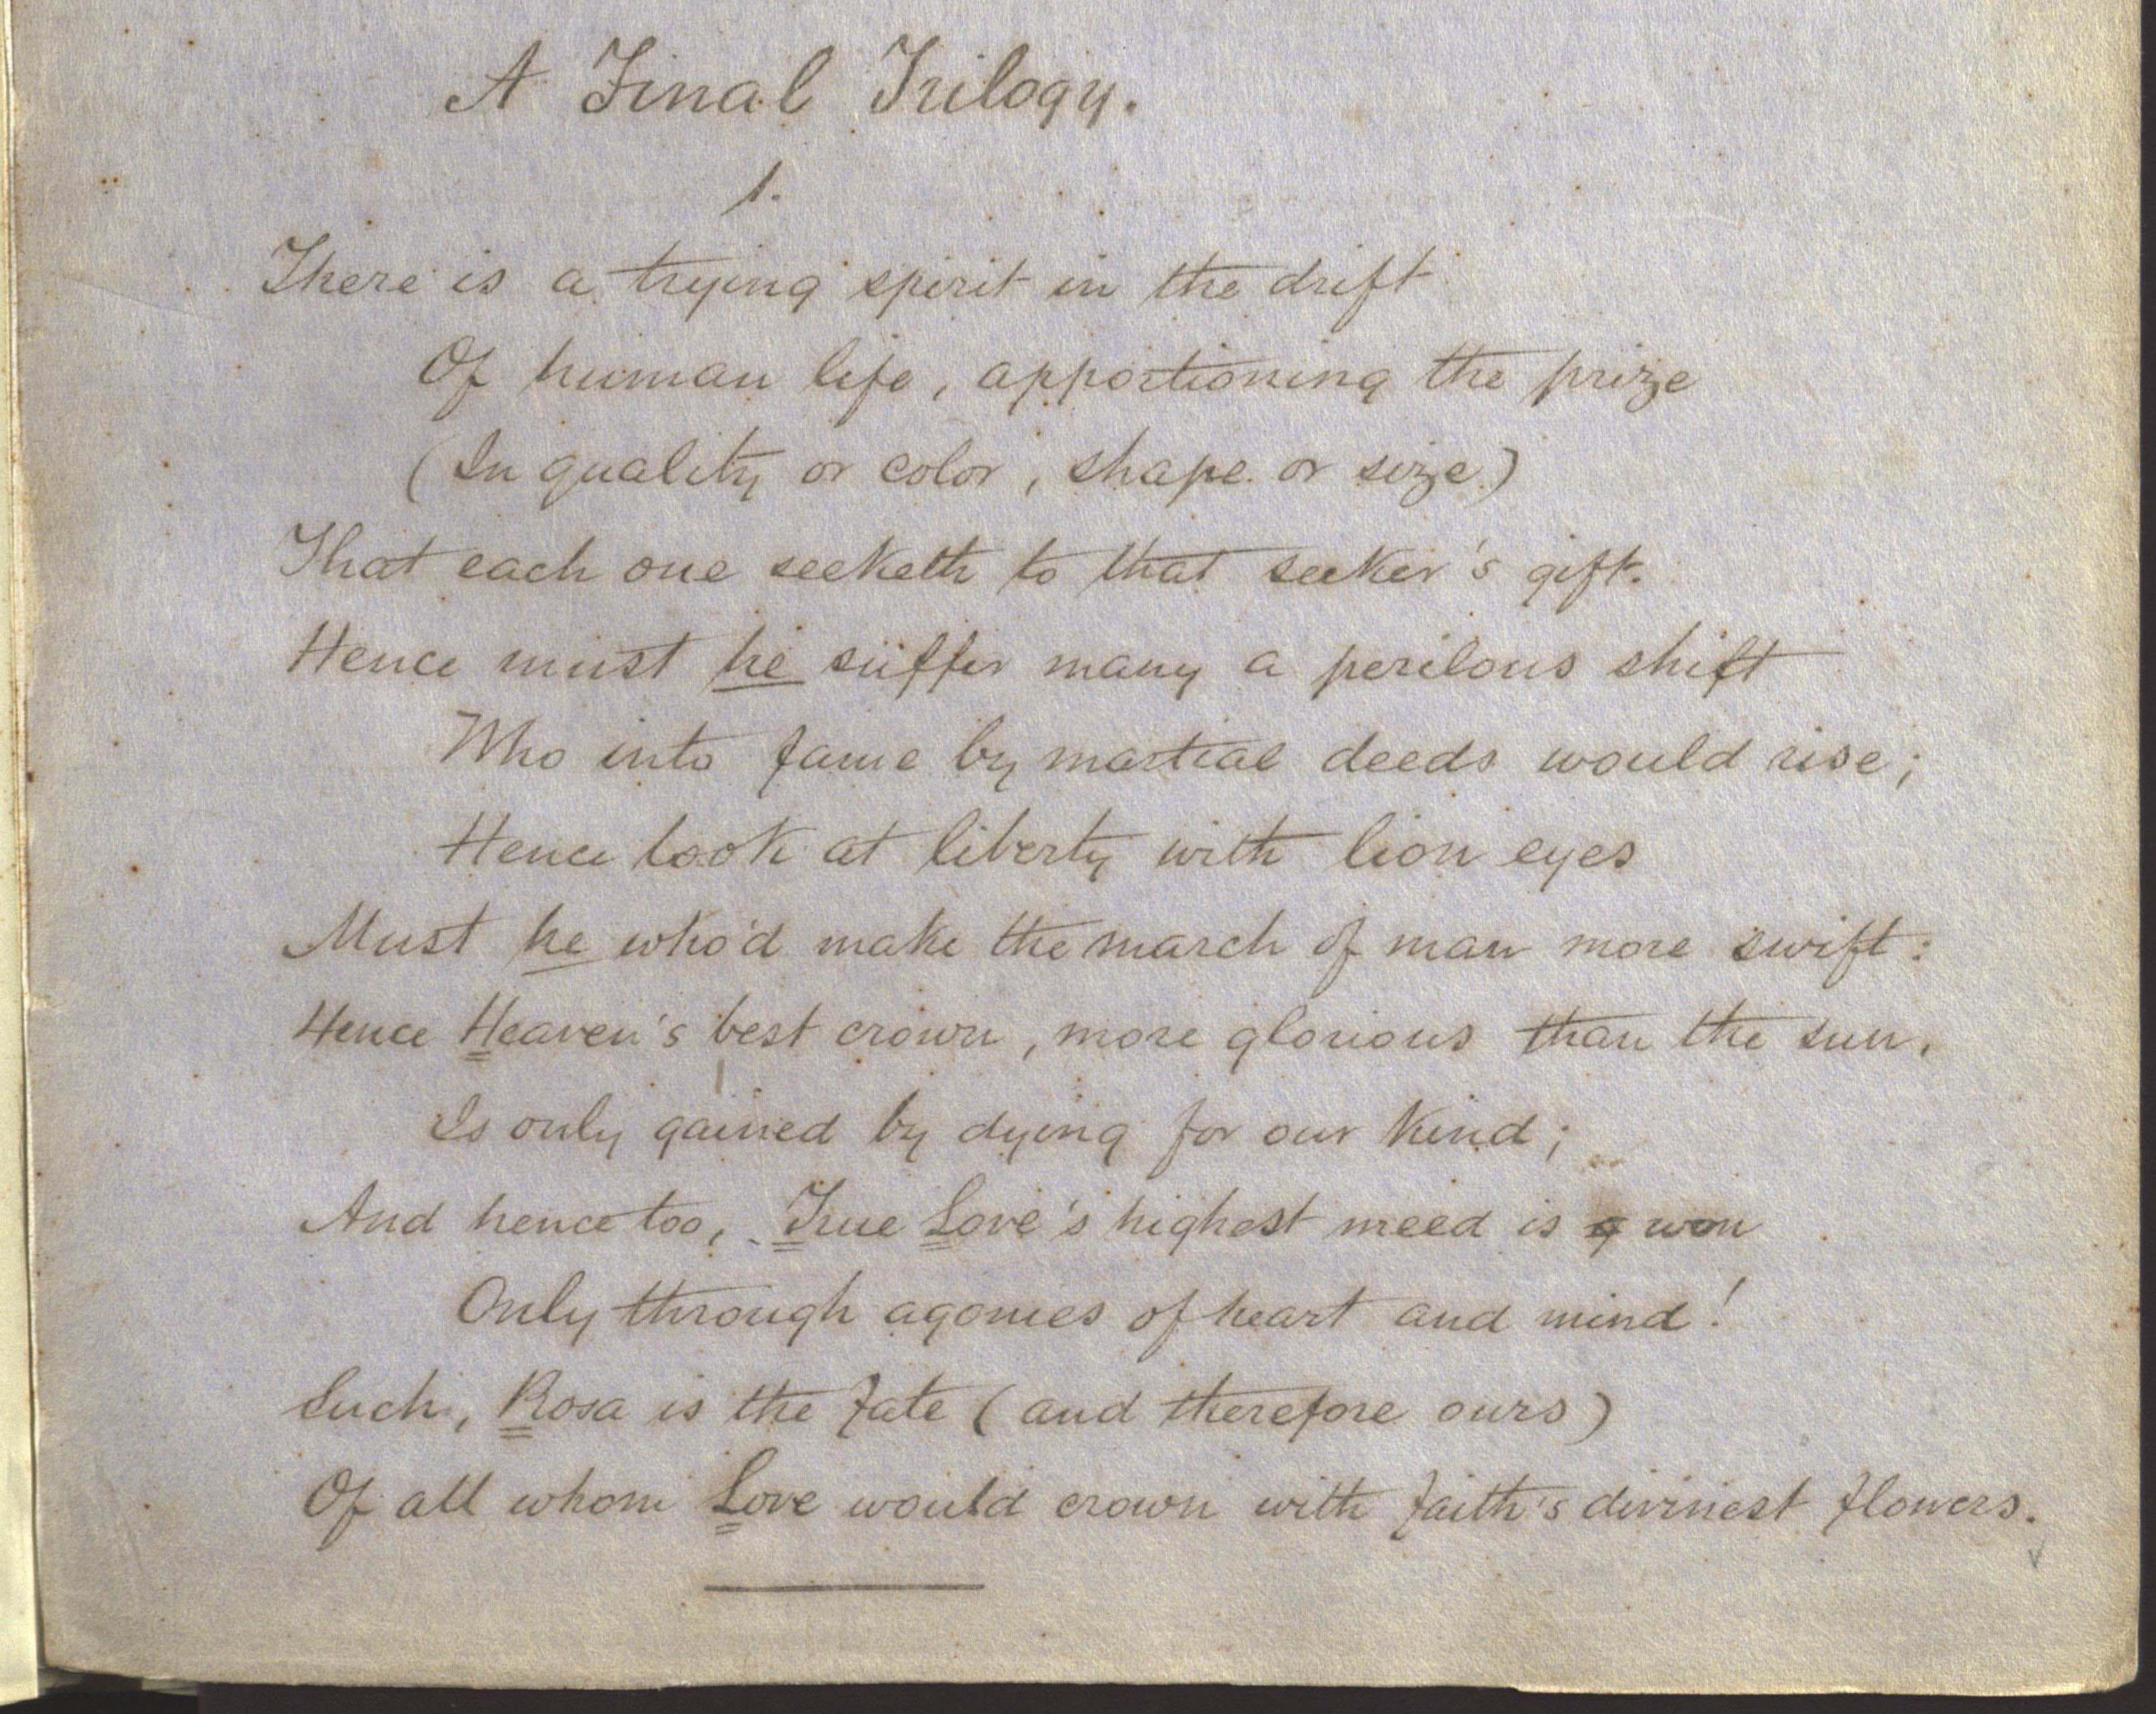 A Final Trilogy.
1.
There is a trying spirit in the drift
Of human life, apportioning the prize
(In quality or color, shape or size)
That each one seeketh to that seeker's gift.
Hence must he suffer many a perilous shift
Who into fame by martial deeds would rise;
Hence look at liberty with lion eyes
Must he who'd make the march of man more swift:
Hence Heaven's best crown, more glorious than the sun,
Is only gained by dying for our kind;
And hence too, True Love's highest meed is won
Only through agonies of heart and mind!
Such, Rosa is the fate (and therefore ours)
Of all whom Love would crown with faith's divinest flowers.